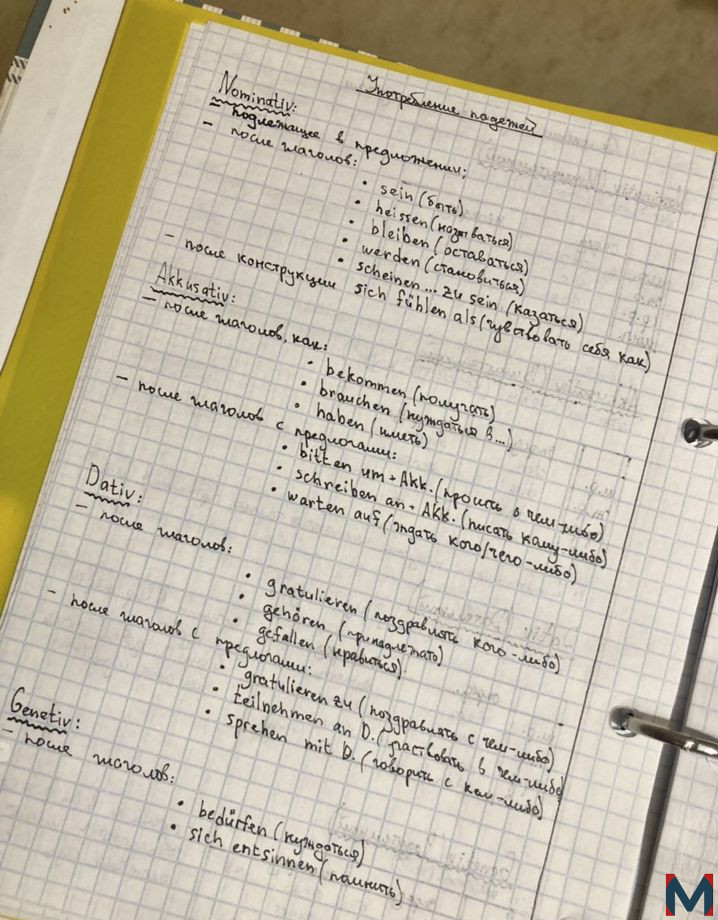 Употребление падежей
Nominativ:
- подлежащее в предложении;
- после глаголов:
• sein (быть)
• heissen (называться)
• bleiben (оставаться)
• werden (становиться)
• scheinen ... zu sein (казаться)
- после конструкции sich fühlen als (чувствовать себя как)
Akkusativ:
- после глаголов, как:
• bekommen (получать)
• brauchen (нуждаться в...)
• haben (иметь)
- после глаголов с предлогами:
• bitten um + Akk. (просить о чем-либо)
• schreiben an + Akk. (писать кому-либо)
• warten auf (ждать кого/чего-либо)
Dativ:
- после глаголов:
• gratulieren (поздравлять кого-либо)
• gehören (принадлежать)
• gefallen (нравиться)
- после глаголов с предлогами:
• gratulieren zu (поздравлять с чем-либо)
• teilnehmen an D. (участвовать в чем-либо)
• sprehen mit D. (говорить с кем-либо)
Genetiv:
- после глаголов:
• bedürfen (нуждаться)
• sich entsinnen (помнить)
M